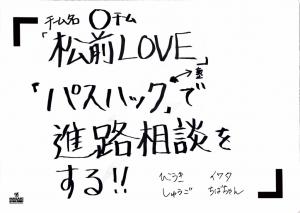 チーム名 〇チーム
「松前LOVE」
「パスハック」で
進路相談を
する!!
ひうき イワタ
しゅうご ちばちゃん